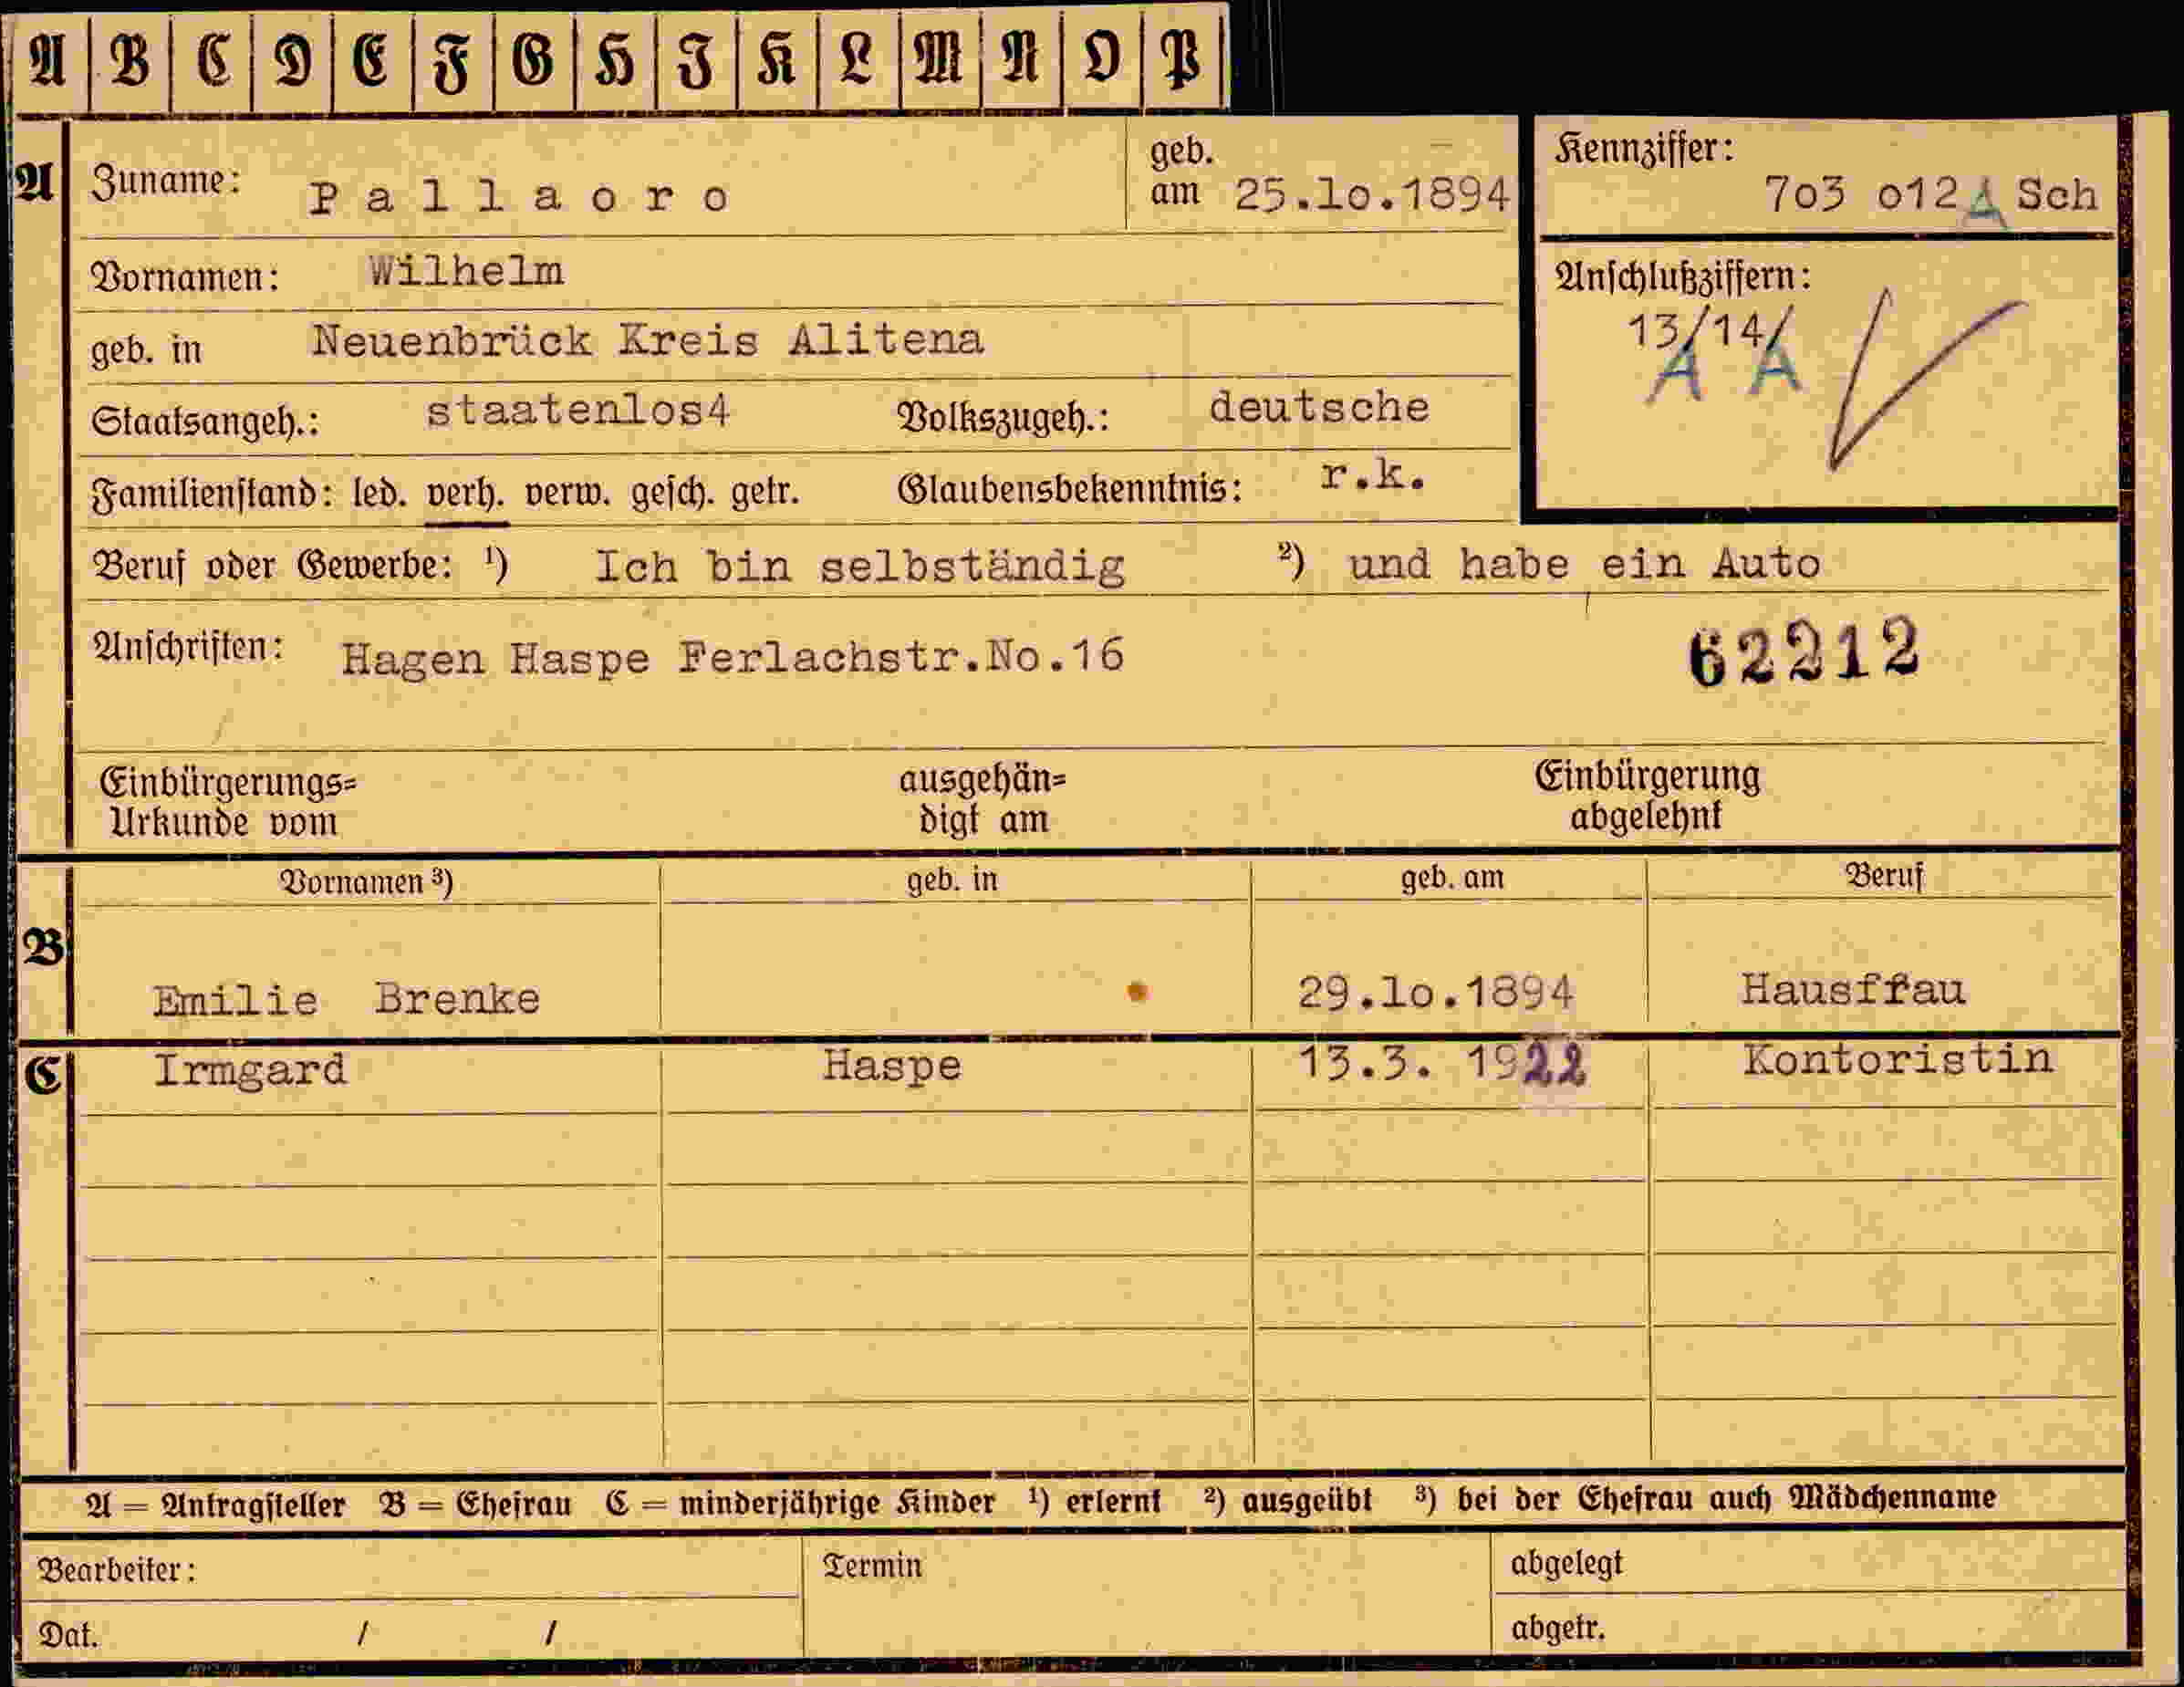 A B C D E F G H I K L M N O P
A Zuname: Pallaoro geb. am 25.1o.1894
Kennziffer: 7o3 o12 A Sch
Vornamen: Wilhelm
Anschlußziffern:
13/14/
A A
geb. in Neuenbrück Kreis Alitena
Staatsangeh.: staatenlos4 Volkszugeh.: deutsche
Familienstand: led. verh. verw. gesch. getr. Glaubensbekenntnis: r.k.
Beruf oder Gewerbe: ¹) Ich bin selbständig ²) und habe ein Auto
Anschriften: Hagen Haspe Ferlachstr.No.16 62212
Einbürgerungs= ausgehän= Einbürgerung
Urkunde vom digt am abgelehnt
Vornamen ³) geb. in geb. am Beruf
B
Emilie Brenke 29.1o.1894 Hausffau
C Irmgard Haspe 13.3. 1922 Kontoristin
A = Antragsteller B = Ehefrau C = minderjährige Kinder ¹) erlernt ²) ausgeübt ³) bei der Ehefrau auch Mädchenname
Bearbeiter: Termin abgelegt
Dat. / / abgetr.